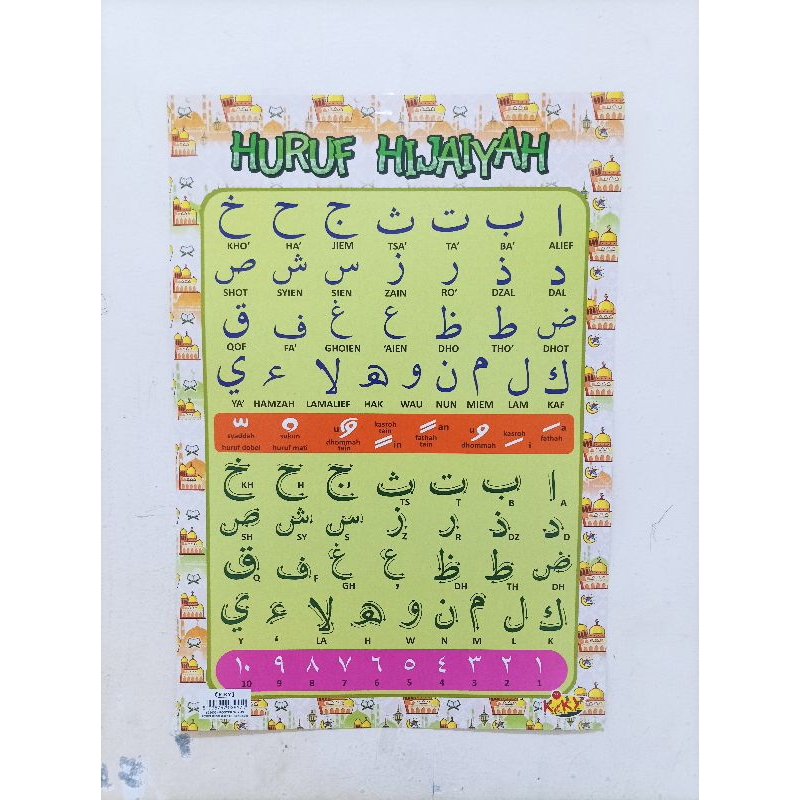 HURUF HIJAIYAH
ا ب ت ث ج ح خ
KHO' HA' JIEM TSA' TA' BA' ALIEF
د ذ ر ز س ش ص
SHOT SYIEN SIEN ZAIN RO' DZAL DAL
ض ط ظ ع غ ف ق
QOF FA' GHOIEN 'AIEN DHO THO' DHOT
ك ل م ن و ه لا ء ي
YA' HAMZAH LAMALIEF HAK WAU NUN MIEM LAM KAF
syaddah sukun u kasroh tain an u kasroh a
huruf dobel huruf mati dhommah tain in fathah tain dhommah i fathah
ا ب ت ث ج ح خ
KH H J TS T B A
د ذ ر ز س ش ص
SH SY S Z R DZ D
ض ط ظ ع غ ف ق
Q F GH ' DH TH DH
ك ل م ن و ه لا ء ي
Y ' LA H W N M L K
١ ٢ ٣ ٤ ٥ ٦ ٧ ٨ ٩ ١٠
10 9 8 7 6 5 4 3 2 1
KiKY